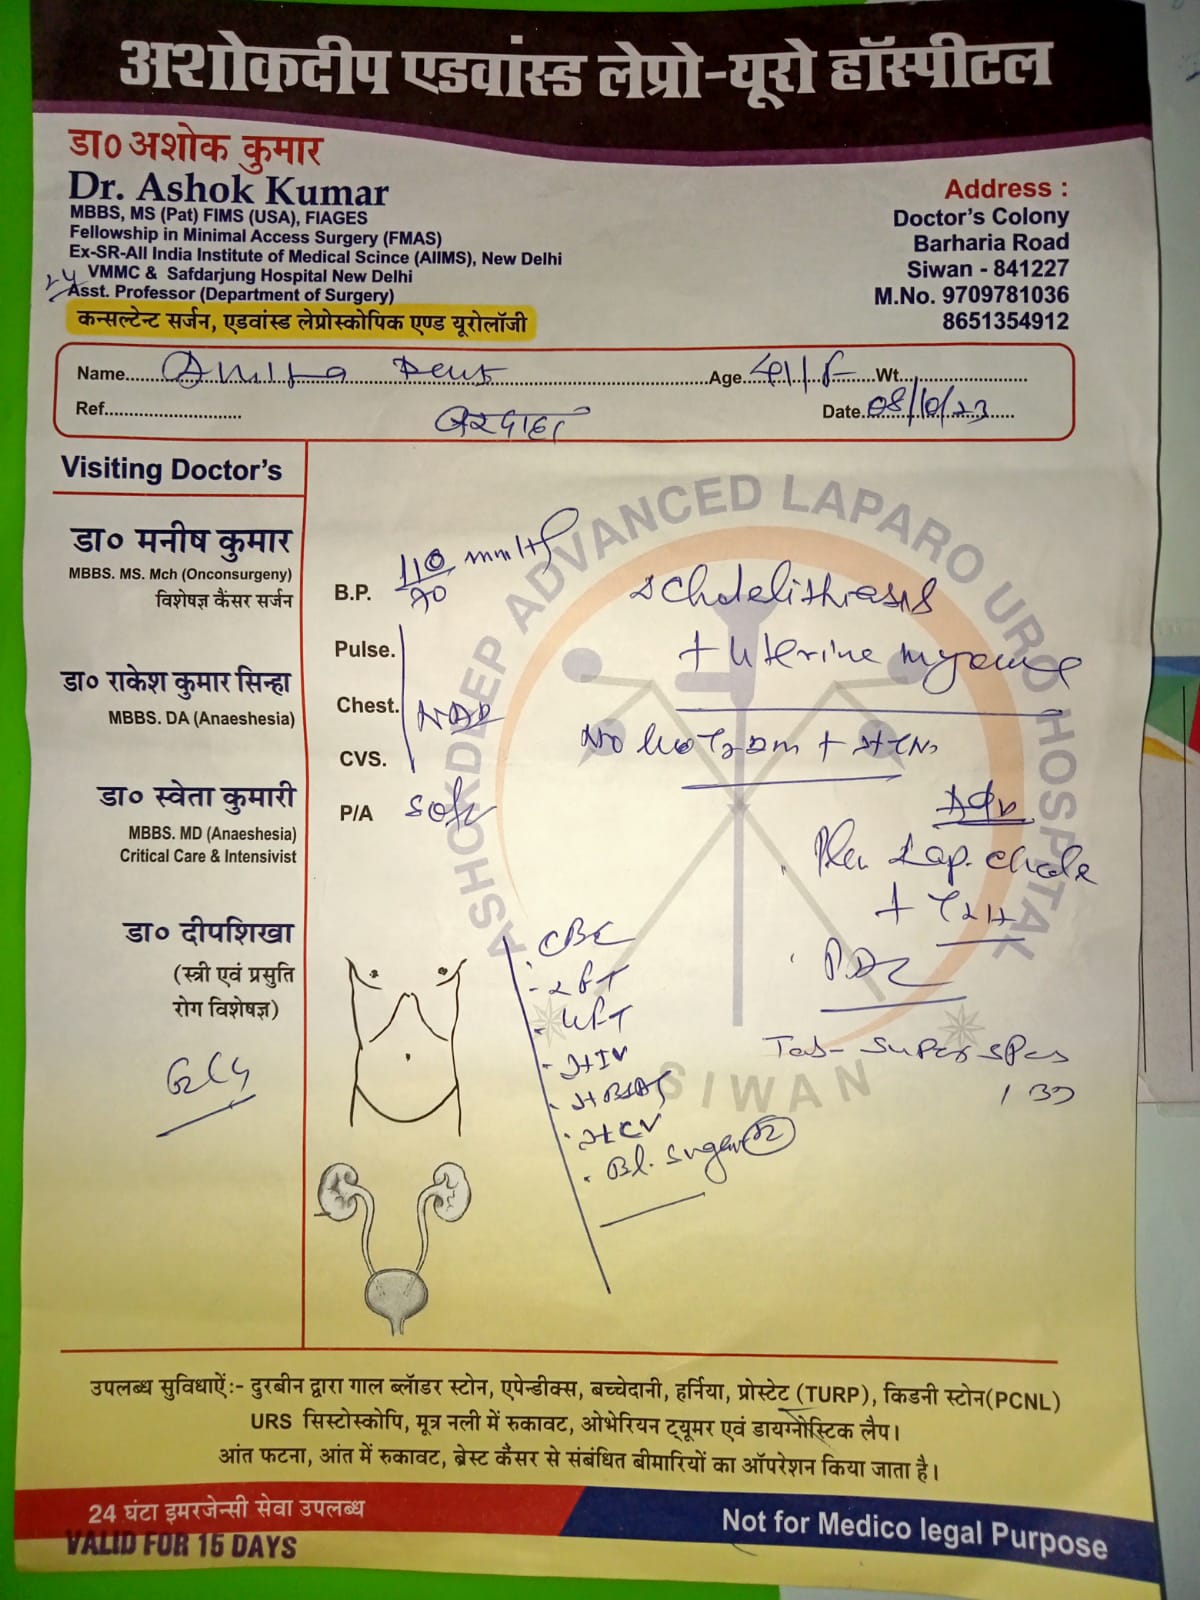 अशोकदीप एडवांस्ड लेप्रो-यूरो हॉस्पीटल
डा० अशोक कुमार
Dr. Ashok Kumar
MBBS, MS (Pat) FIMS (USA), FIAGES
Fellowship in Minimal Access Surgery (FMAS)
Ex-SR-All India Institute of Medical Scince (AIIMS), New Delhi
VMMC & Safdarjung Hospital New Delhi
Asst. Professor (Department of Surgery)
कन्सल्टेन्ट सर्जन, एडवांस्ड लेप्रोस्कोपिक एण्ड यूरोलॉजी
Address :
Doctor's Colony
Barharia Road
Siwan - 841227
M.No. 9709781036
8651354912
Name Age Wt
Ref. Date 08/10/23
Visiting Doctor's
डा० मनीष कुमार
MBBS. MS. Mch (Onconsurgeny)
विशेषज्ञ कैंसर सर्जन
डा० राकेश कुमार सिन्हा
MBBS. DA (Anaeshesia)
डा० स्वेता कुमारी
MBBS. MD (Anaeshesia)
Critical Care & Intensivist
डा० दीपशिखा
(स्त्री एवं प्रसुति
रोग विशेषज्ञ)
B.P. 110/70 mmHg
Pulse.
Chest. NAD
CVS.
P/A Soft
+ uterine
Adv
Plan Lap. chole
+ TLH
PAC
CBC
LFT
KFT
HIV
HBSAG
HCV
Bl. Sugar (R)
ASHOKDEEP ADVANCED LAPARO URO HOSPITAL
SIWAN
उपलब्ध सुविधाऐं:- दुरबीन द्वारा गाल ब्लॅाडर स्टोन, एपेन्डीक्स, बच्चेदानी, हर्निया, प्रोस्टेट (TURP), किडनी स्टोन(PCNL)
URS सिस्टोस्कोपि, मूत्र नली में रुकावट, ओभेरियन ट्यूमर एवं डायग्नोस्टिक लैप।
आंत फटना, आंत में रुकावट, ब्रेस्ट कैंसर से संबंधित बीमारियों का ऑपरेशन किया जाता है।
24 घंटा इमरजेन्सी सेवा उपलब्ध
VALID FOR 15 DAYS
Not for Medico legal Purpose